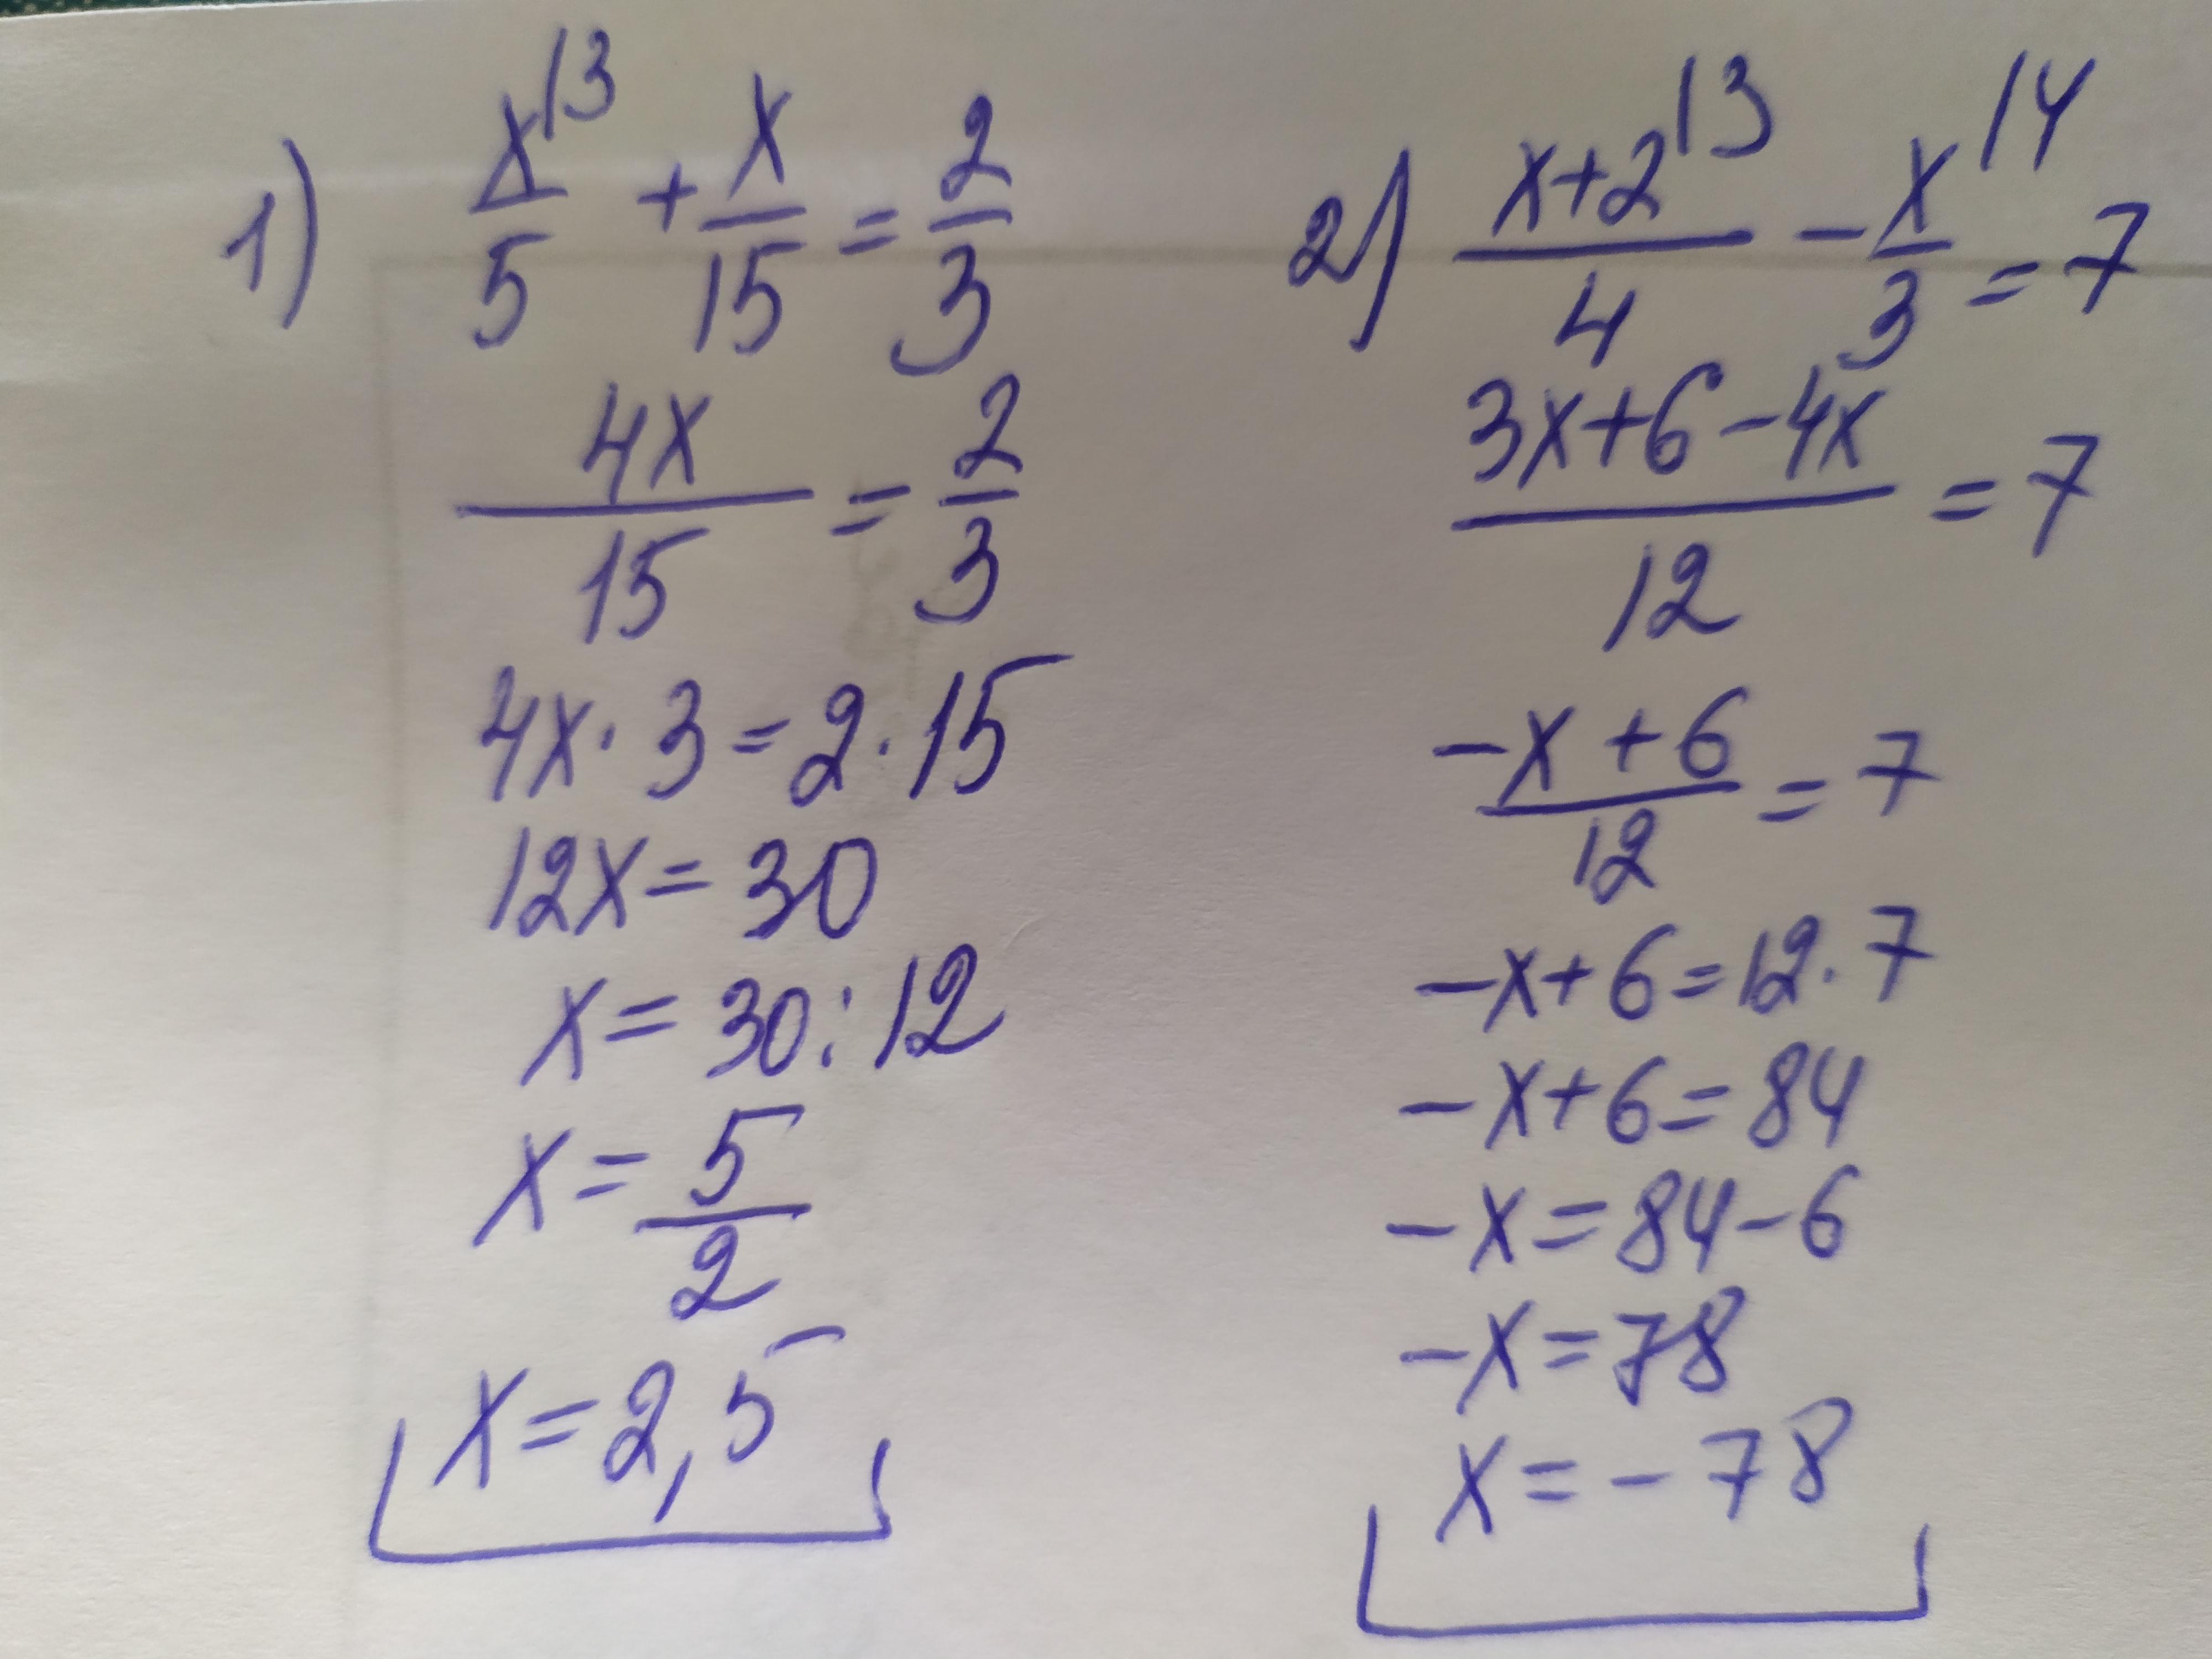 1) x/5 \3 + x/15 = 2/3
4x/15 = 2/3
4x · 3 = 2 · 15
12x = 30
x = 30 : 12
x = 5/2
x = 2,5
2) (x+2)/4 \3 - x/3 \4 = 7
(3x+6-4x)/12 = 7
(-x+6)/12 = 7
-x+6 = 12 · 7
-x+6 = 84
-x = 84-6
-x = 78
x = -78